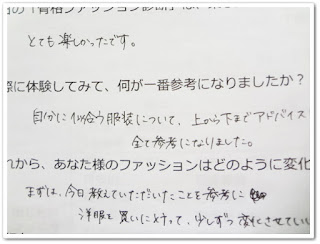 の「骨格ファッション診断」は、
とても楽しかったです。
際に体験してみて、何が一番参考になりましたか？
自分に似合う服装について、上から下までアドバイス
全て参考になりました。
れから、あなた様のファッションはどのように変化
まずは、今日教えていただいたことを参考に
洋服を買いに行って、少しずつ変化させてい